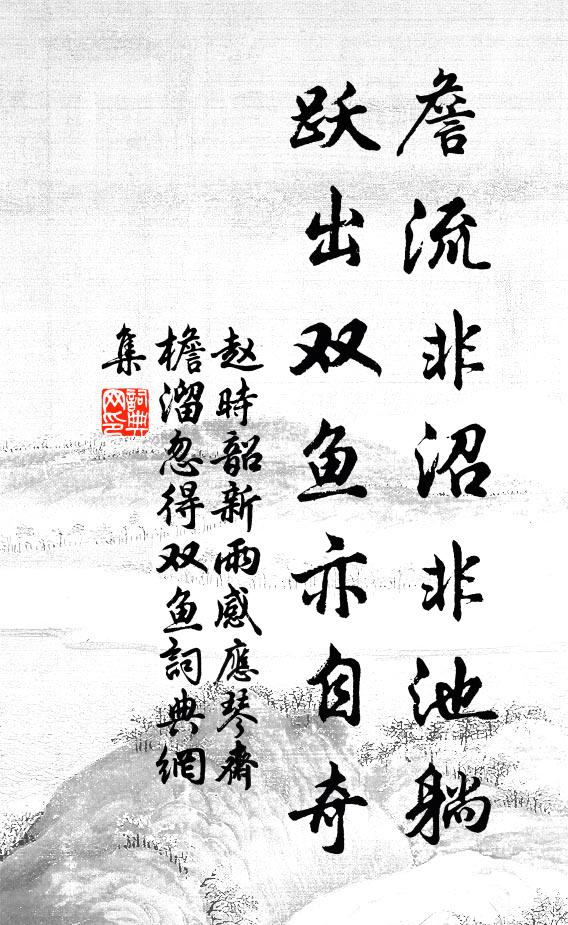 詹流非沼非池躺
跃出双鱼亦自奇
赵時韶新雨感應琴齋
檐溜忽得双鱼詞典網
集
詞典
网印